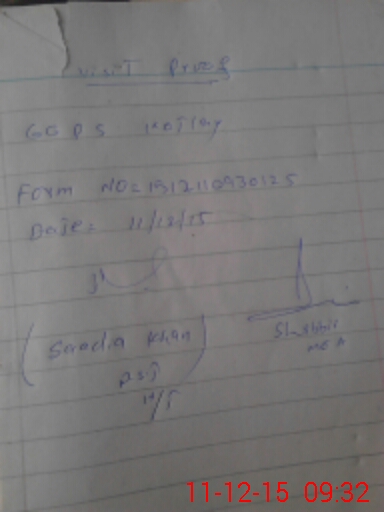 Visit Proof
GGPS Kotlay
Form NO= 1512110930125
Date: 11/12/15
(Saadia Khan)
PST
H/T
Shabbir
MEA
11-12-15 09:32